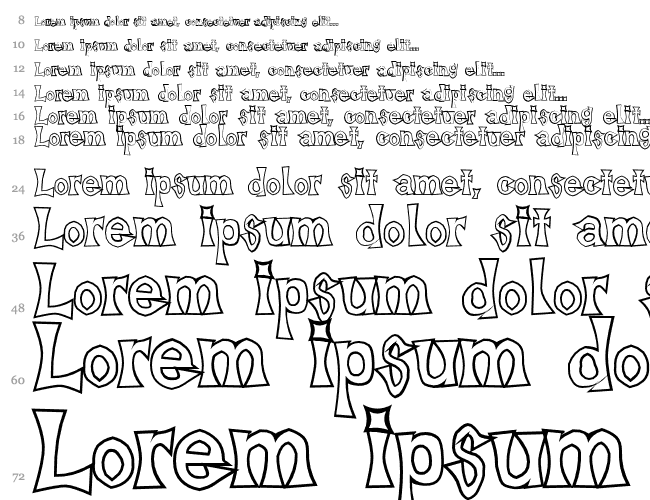 8 Lorem ipsum dolor sit amet, consectetuer adipiscing elit...
10 Lorem ipsum dolor sit amet, consectetuer adipiscing elit...
12 Lorem ipsum dolor sit amet, consectetuer adipiscing elit...
14 Lorem ipsum dolor sit amet, consectetuer adipiscing elit...
16 Lorem ipsum dolor sit amet, consectetuer adipiscing elit...
18 Lorem ipsum dolor sit amet, consectetuer adipiscing
24 Lorem ipsum dolor sit amet, consectetu
36 Lorem ipsum dolor sit ame
48 Lorem ipsum dolor s
60 Lorem ipsum do
72 Lorem ipsum